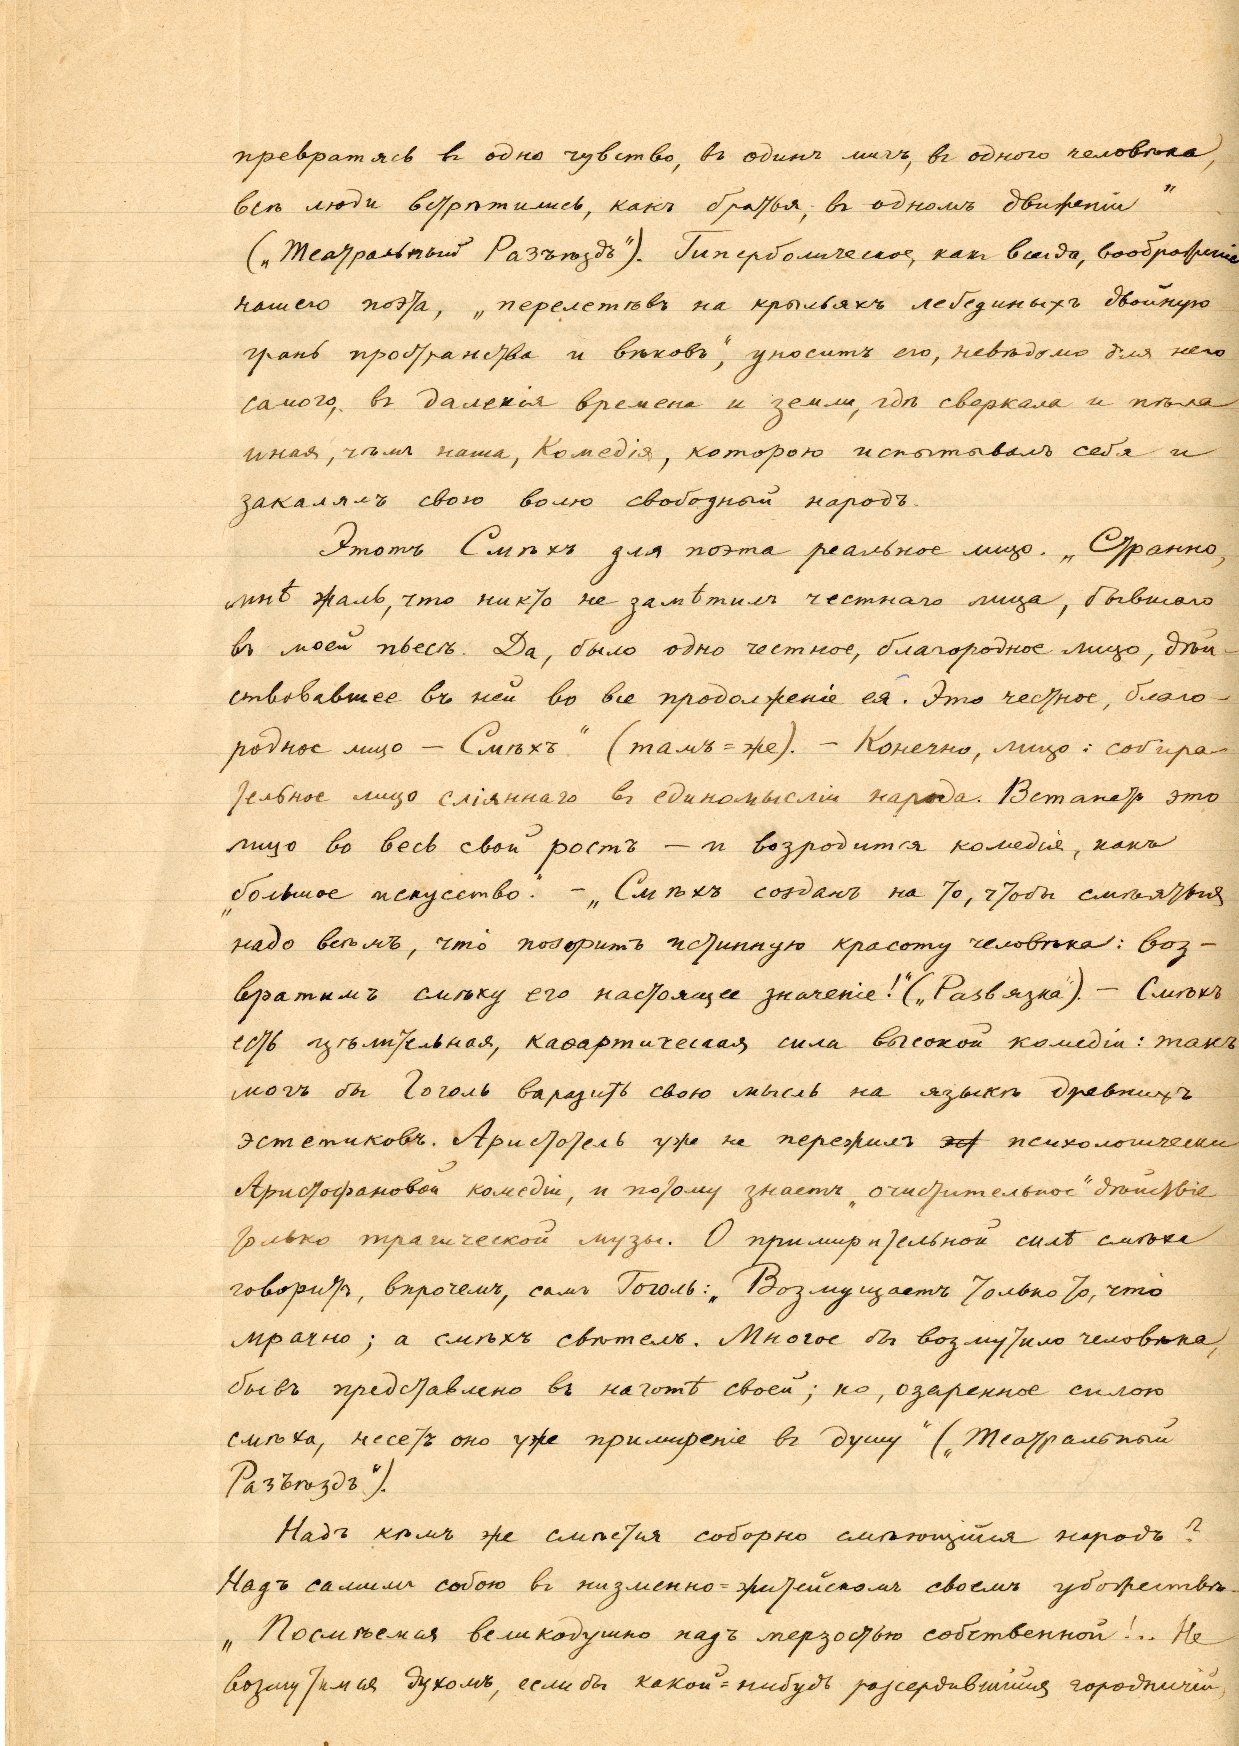 превратясь въ одно чувство, въ одинъ мигъ, въ одного человѣка,
всѣ люди встрѣтились, какъ братья, въ одномъ движеніи"
(„Театральный Разъѣздъ"). Гиперболическое, какъ всегда, воображеніе
нашего поэта, „перелетѣвъ на крыльяхъ лебединыхъ двойную
грань пространства и вѣковъ", уноситъ его, невѣдомо для него
самого, въ далекія времена и земли, гдѣ сверкала и пѣла
иная, чѣмъ наша, Комедія, которою испытывалъ себя и
закалялъ свою волю свободный народъ.
Этотъ Смѣхъ для поэта реальное лицо. „Странно,
мнѣ жаль, что никто не замѣтилъ честнаго лица, бывшаго
въ моей пьесѣ. Да, было одно честное, благородное лицо, дѣй-
ствовавшее въ ней во все продолженіе ея. Это честное, благо-
родное лицо — Смѣхъ" (тамъ=же). — Конечно, лицо: собира-
тельное лицо сліяннаго въ единомысліи народа. Встанетъ это
лицо во весь свой ростъ — и возродится комедія, какъ
„большое искусство". — „Смѣхъ созданъ на то, чтобы смѣяться
надо всѣмъ, что̀ позоритъ истинную красоту человѣка: воз-
вратимъ смѣху его настоящее значеніе!" („Развязка"). — Смѣхъ
есть цѣлительная, каѳартическая сила высокой комедіи: такъ
могъ бы Гоголь выразить свою мысль на языкѣ древнихъ
эстетиковъ. Аристотель уже не пережилъ психологически
Аристофановой комедіи, и потому знаетъ „очистительное" дѣйствіе
только трагической музы. О примирительной силѣ смѣха
говоритъ, впрочемъ, самъ Гоголь: „Возмущаетъ только то, что̀
мрачно; а смѣхъ свѣтелъ. Многое бы возмутило человѣка,
бывъ представлено въ наготѣ своей; но, озаренное силою
смѣха, несетъ оно уже примиреніе въ душу" („Театральный
Разъѣздъ").
Надъ кѣмъ же смѣется соборно смѣющійся народъ?
Надъ самимъ собою въ низменно=житейскомъ своемъ убожествѣ.
„Посмѣемся великодушно надъ мерзостью собственной!.. Не
возмутимся духомъ, если бы какой=нибудь разсердившійся городничій,